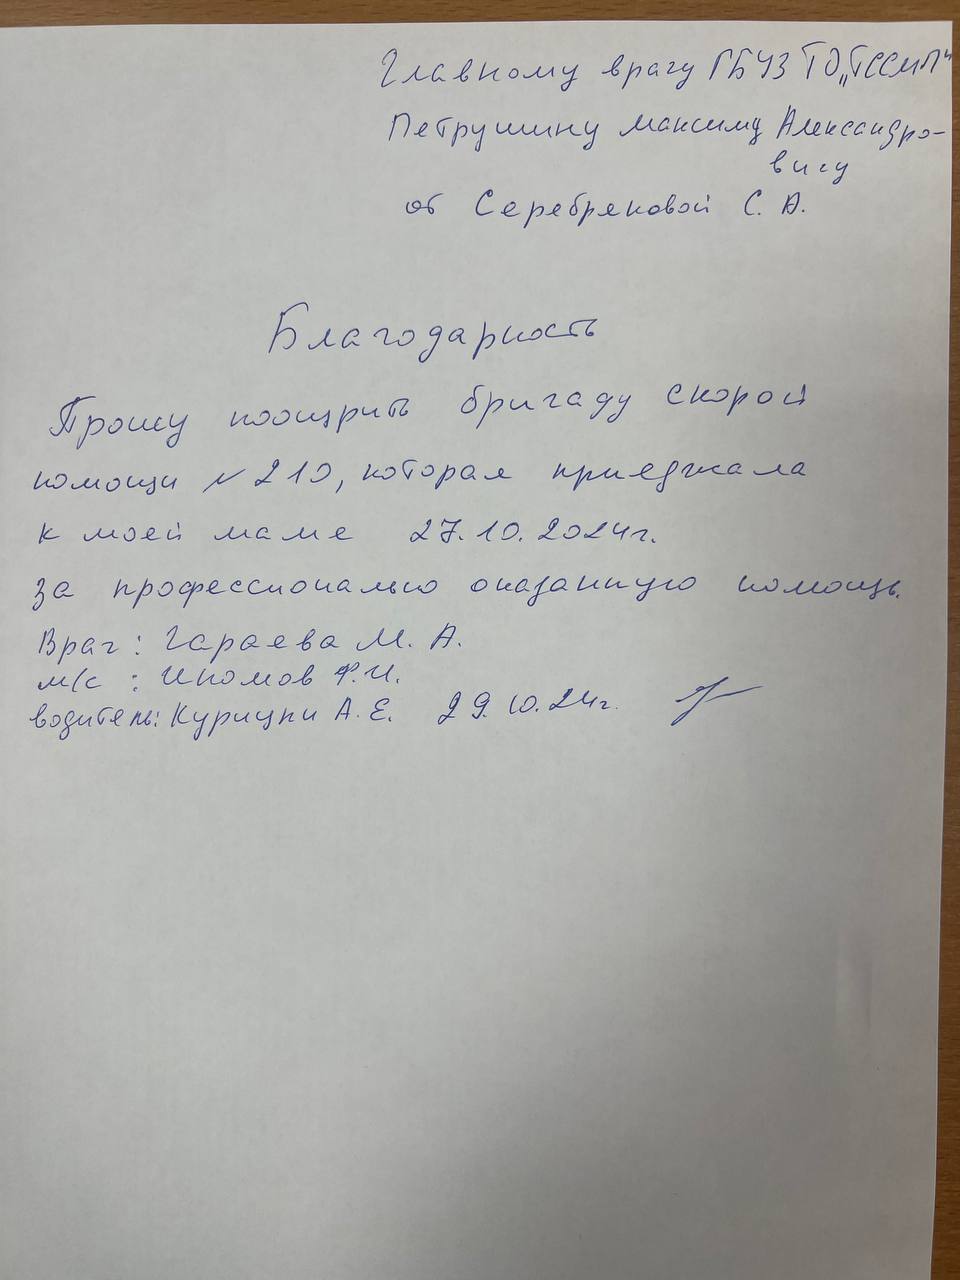 Главному врагу ГБУЗ ТО „ТССМП"
Петрушину Максиму Александро-
вичу
от Серебряковой С. А.
Благодарность
Прошу поощрить бригаду скорой
помощи №210, которая приезжала
к моей маме 27.10.2024г.
за профессионально оказанную помощь.
Врач: Гараева М. А.
м/с : Иномов Ф.И.
водитель: Курицки А. Е. 29.10.24г.